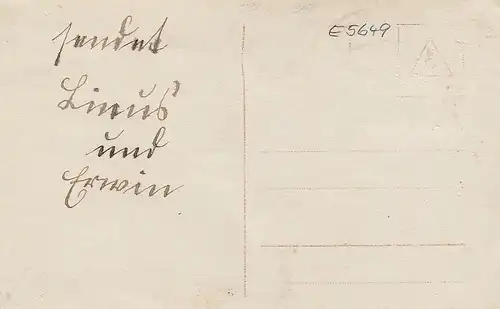 sendet
Linus
und
Erwin
E5649